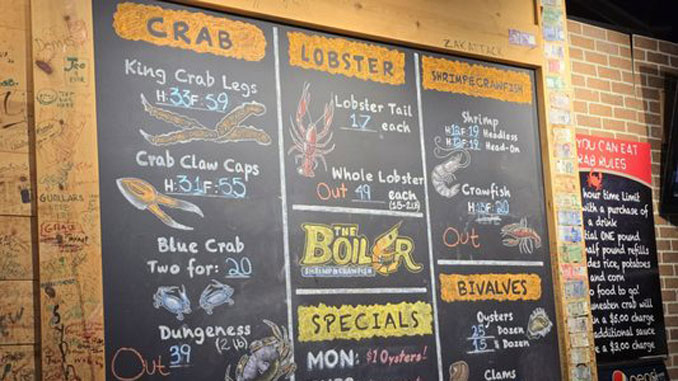 CRAB
King Crab Legs
H:33 F:59
Crab Claw Caps
H:31 F:55
Blue Crab
Two for: 20
Dungeness
(2 lb)
Out 39
LOBSTER
Lobster Tail
17 each
Whole Lobster
Out 49 each
THE
BOILER
SHRIMP & CRAWFISH
SPECIALS
MON: $1 Oysters!
SHRIMP & CRAWFISH
Shrimp
Headless
Head-On
Crawfish
Out
BIVALVES
Oysters
25 Dozen
15 ½ Dozen
Clams
ZAK ATTACK
YOU CAN EAT
RAB RULES
hour time Limit
with a purchase of
a drink
itial ONE pound
half pound refills
des rice, potatoes
and corn
o food to go!
neaten crab will
in a $5.00 charge
additional sauce
a $3.00 charge
pepsi